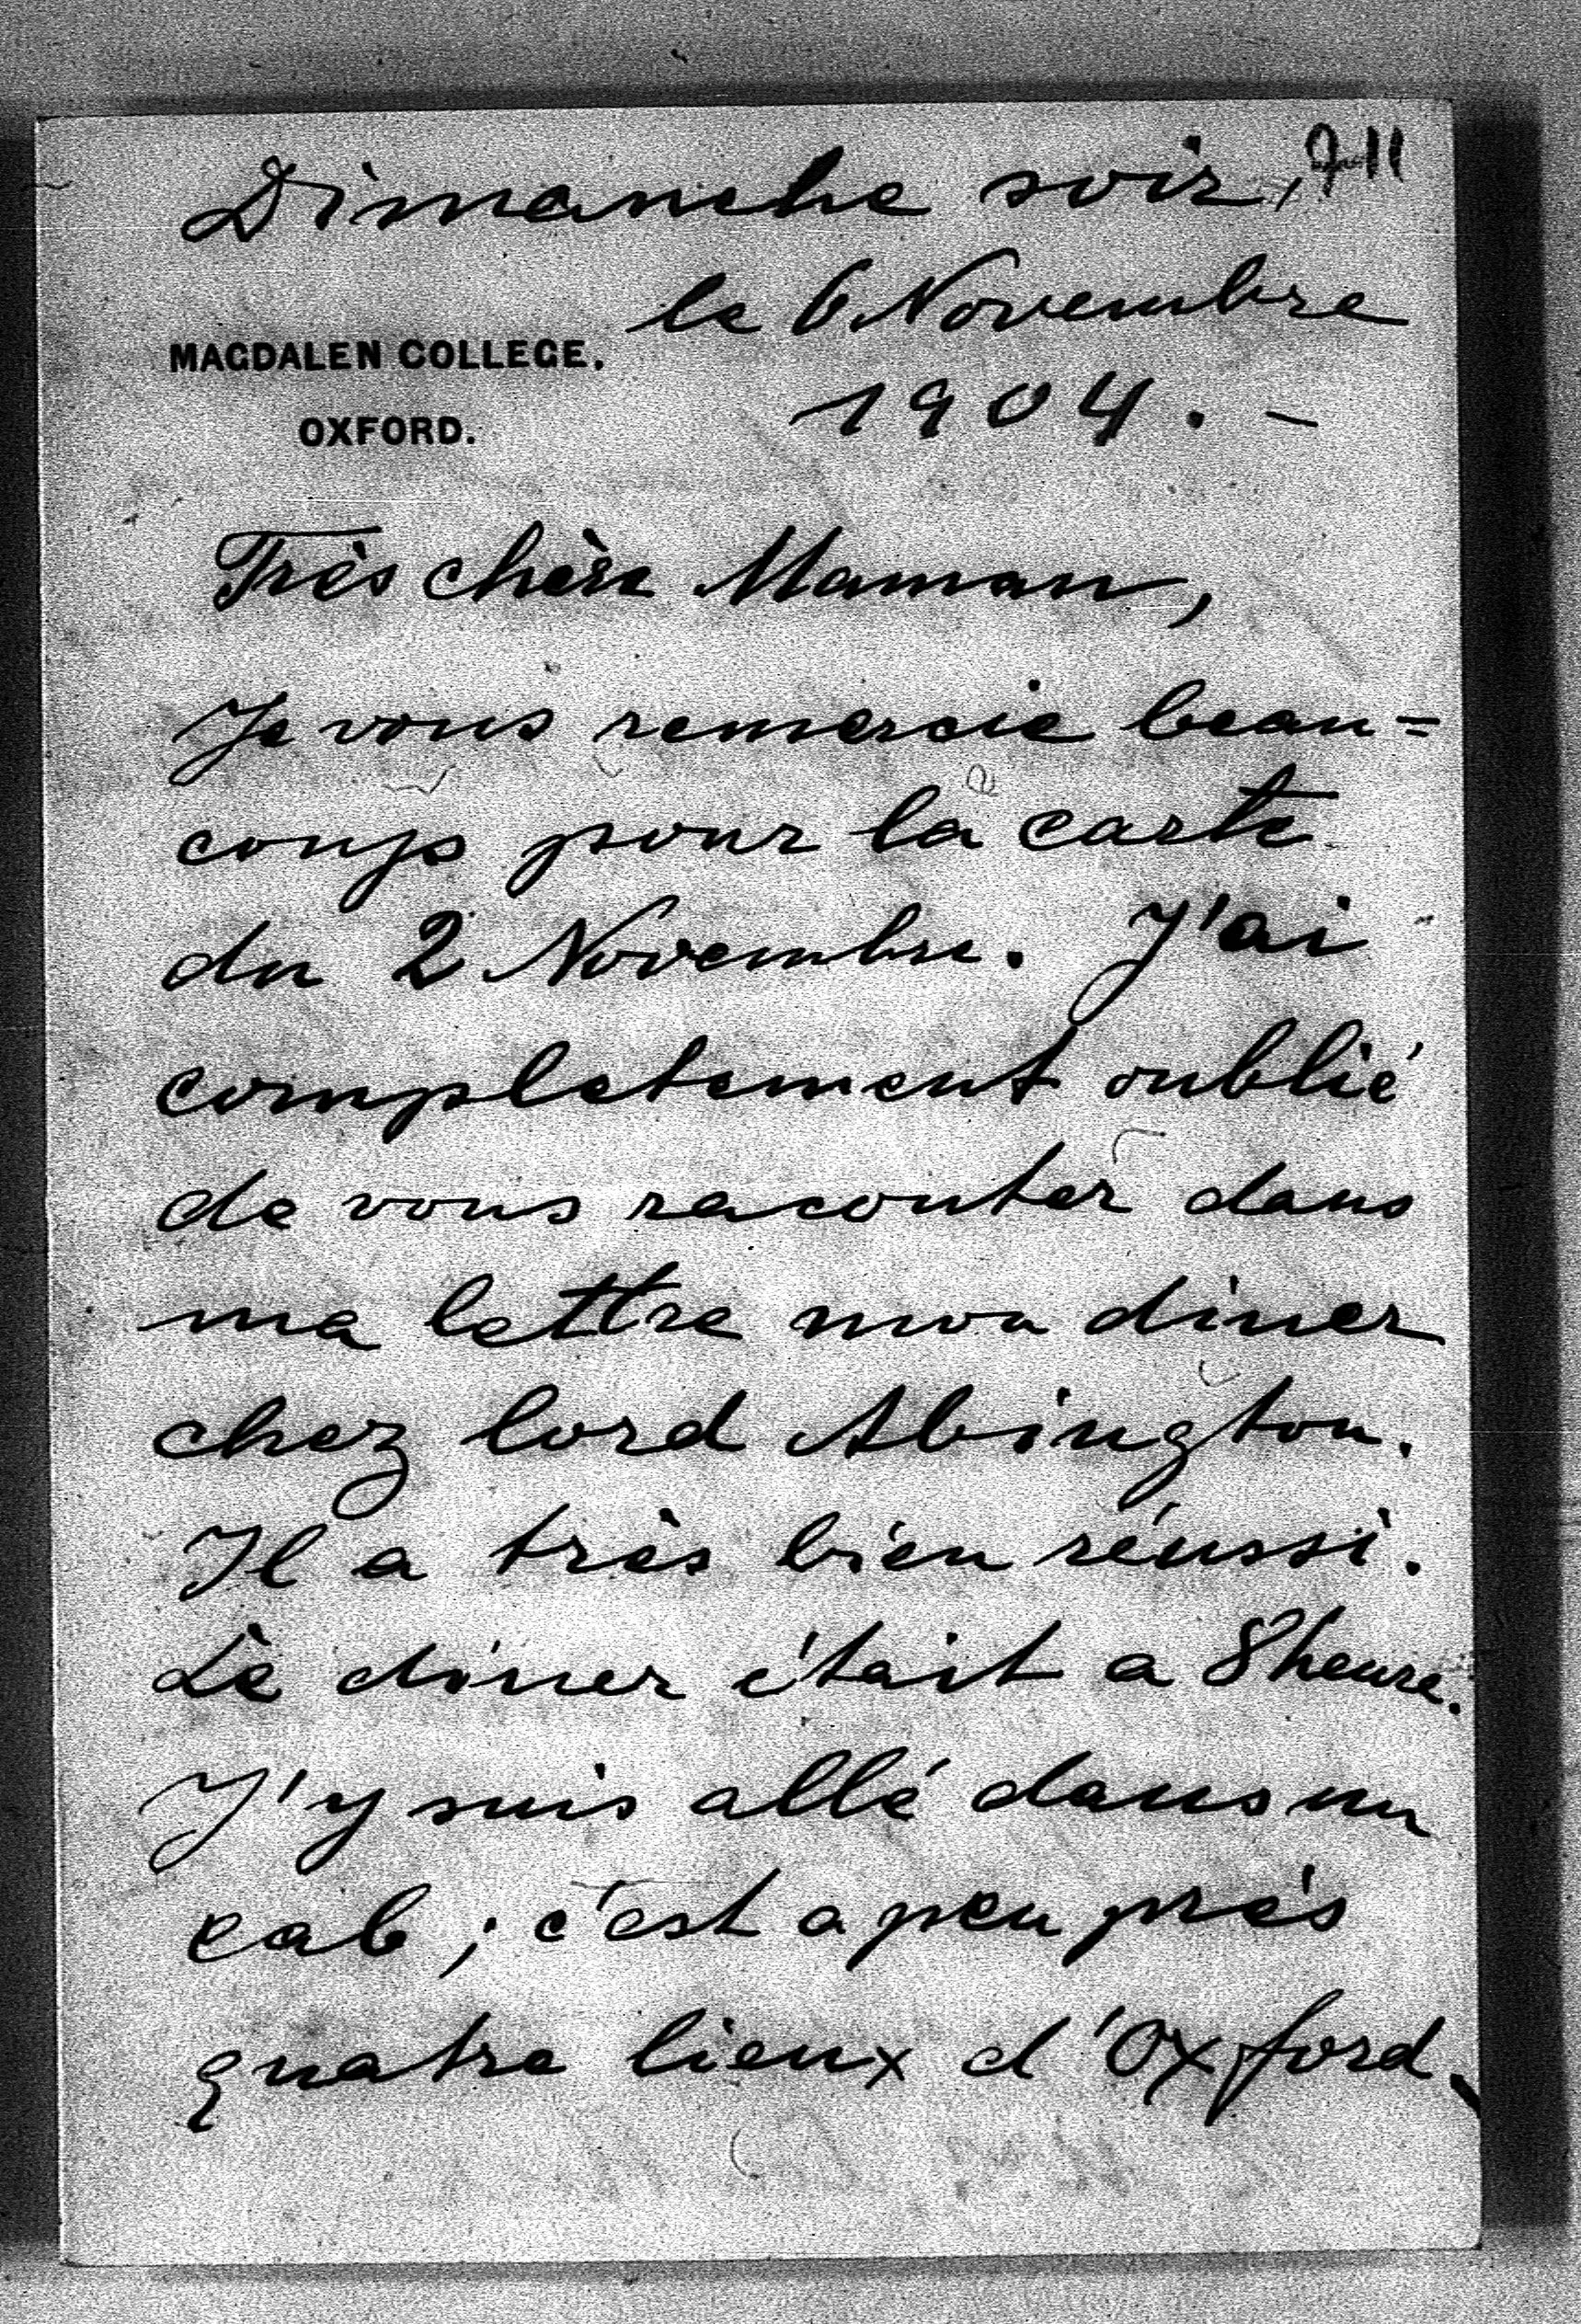 Dimanche soir,
le 6 Novembre
MAGDALEN COLLEGE,
1904. –
OXFORD.
Très chère Maman,
Je vous remercie beau=
coup pour la carte
du 2 Novembre. J'ai
completement oublié
de vous raconter dans
ma lettre mon diner
chez lord Abington.
Il a très bien réussi.
Le diner était a 8 heure.
J'y suis allé dans un
cab; c'est a peu près
quatre lieux d'Oxford.